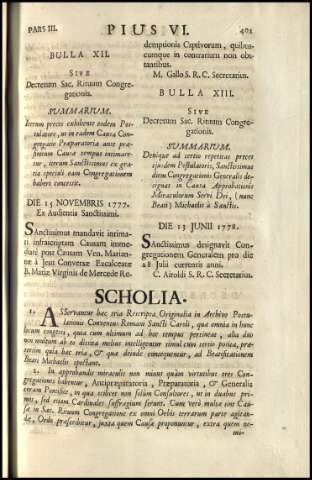 PARS III.
PIUS VI.
401
BULLA XII.
SIVE
Decretum Sac. Rituum Congre-
gationis.
SUMMARIUM.
Iterum preces exhibente eodem Pos-
tulatore, ut in eadem Causa Con-
gregatio Præparatoria ante præ-
finitum Causæ tempus intimare-
tur, iterum Sanctissimus ex gra-
tia speciali eam Congregationem
haberi concessit.
DIE 15 NOVEMBRIS 1777.
Ex Audientia Sanctissimi.
Sanctissimus mandavit intima-
ri infrascriptam Causam imme-
diati post Causam Ven. Marian-
næ a Jesu Conversæ Excalceatæ
B. Mariæ Virginis de Mercede Re-
demptionis Captivorum, quibus-
cumque in contrarium non obs-
tantibus.
M. Gallo S. R. C. Secretarius.
BULLA XIII.
SIVE
Decretum Sac. Rituum Congre-
gationis.
SUMMARIUM.
Denique ad tertio repetitas preces
ejusdem Postulatoris, Sanctissimus
diem Congregationis Generalis de-
signat in Causa Approbationis
Miraculorum Servi Dei, (nunc
Beati) Michaelis a Sanctis.
DIE 13 JUNII 1778.
Sanctissimus designavit Con-
gregationem Generalem pro die
28 Julii currentis anni.
C. Airoldi S. R. C. Secretarius.
SCHOLIA.
1. ASservantur hæc tria Rescripta Originalia in Archivo Postu-
lationis Conventus Romani Sancti Caroli, quæ omnia in hunc
locum congeres, quia cum ultimum ad hoc tempus pertineat, alia duo
non multum ab eo distita melius intelligentur simul cum tertio posita, præ-
terim quia hæc tria, & quæ deinde consequentur, ad Beatificationem
Beati Michaelis spectant.
2. In approbandis miraculis non minus quàm virtutibus tres Con-
gregationes habentur, Antepræparatoria, Præparatoria, & Generalis
coram Pontifice, in qua scilicet non solùm Consultores, ut in duabus pri-
mis, sed etiam Cardinales suffragium ferunt. Cum verò multæ sint Cau-
sæ in Sac. Rituum Congregatione ex omni Orbis terrarum parte agitan-
dæ, Ordo præscribitur, juxta quem Causæ proponuntur, extra quem ne-
mi-